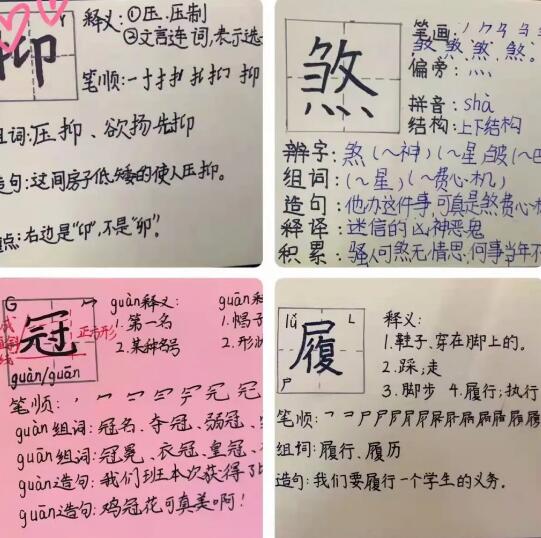 抑
释义：①压.压制
②文言连词,表示选
笔顺:一十扌扌扌扣 抑
组词:压抑、欲扬先抑
造句:这间房子低矮的使人压抑。
点:右边是"卬",不是"卯"。
煞
笔画:
煞 煞 煞 煞.
偏旁:灬
拼音:shà
结构:上下结构
辨字:煞(~神)(~星)皱(~巴
组词:(~星)(~费心机)
造句:他办这件事,可真是煞费心机
释译:迷信的凶神恶鬼
积累:骚人可煞无情思,何事当年不
G
冠
正方形
guàn/guān
guàn释义:
1.第一名
2.某种名号
guān释
1.帽子
2.形状
笔顺:
guàn组词:冠名、夺冠、弱冠、
guān组词:冠冕、衣冠、皇冠、
guàn造句:我们班本次获得了比
guān造句:鸡冠花可真美啊!
lǚ L
履
尸
释义:
1.鞋子、穿在脚上的。
2.踩;走
3.脚步 4.履行;执行
笔顺:
组词:履行、履历
造句:我们要履行一个学生的义务。